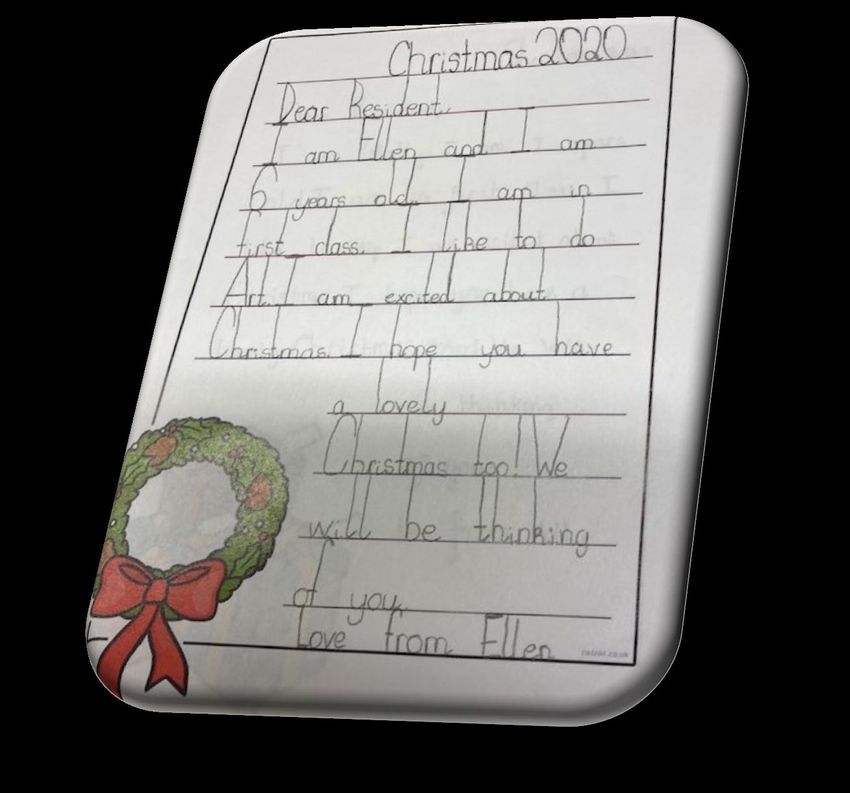 Christmas 2020
Dear Resident.
I am Ellen and I am
6 years old. I am in
first class. I like to do
Art. I am excited about
Christmas. I hope you have
a lovely
Christmas too! We
will be thinking
of you.
Love from Ellen